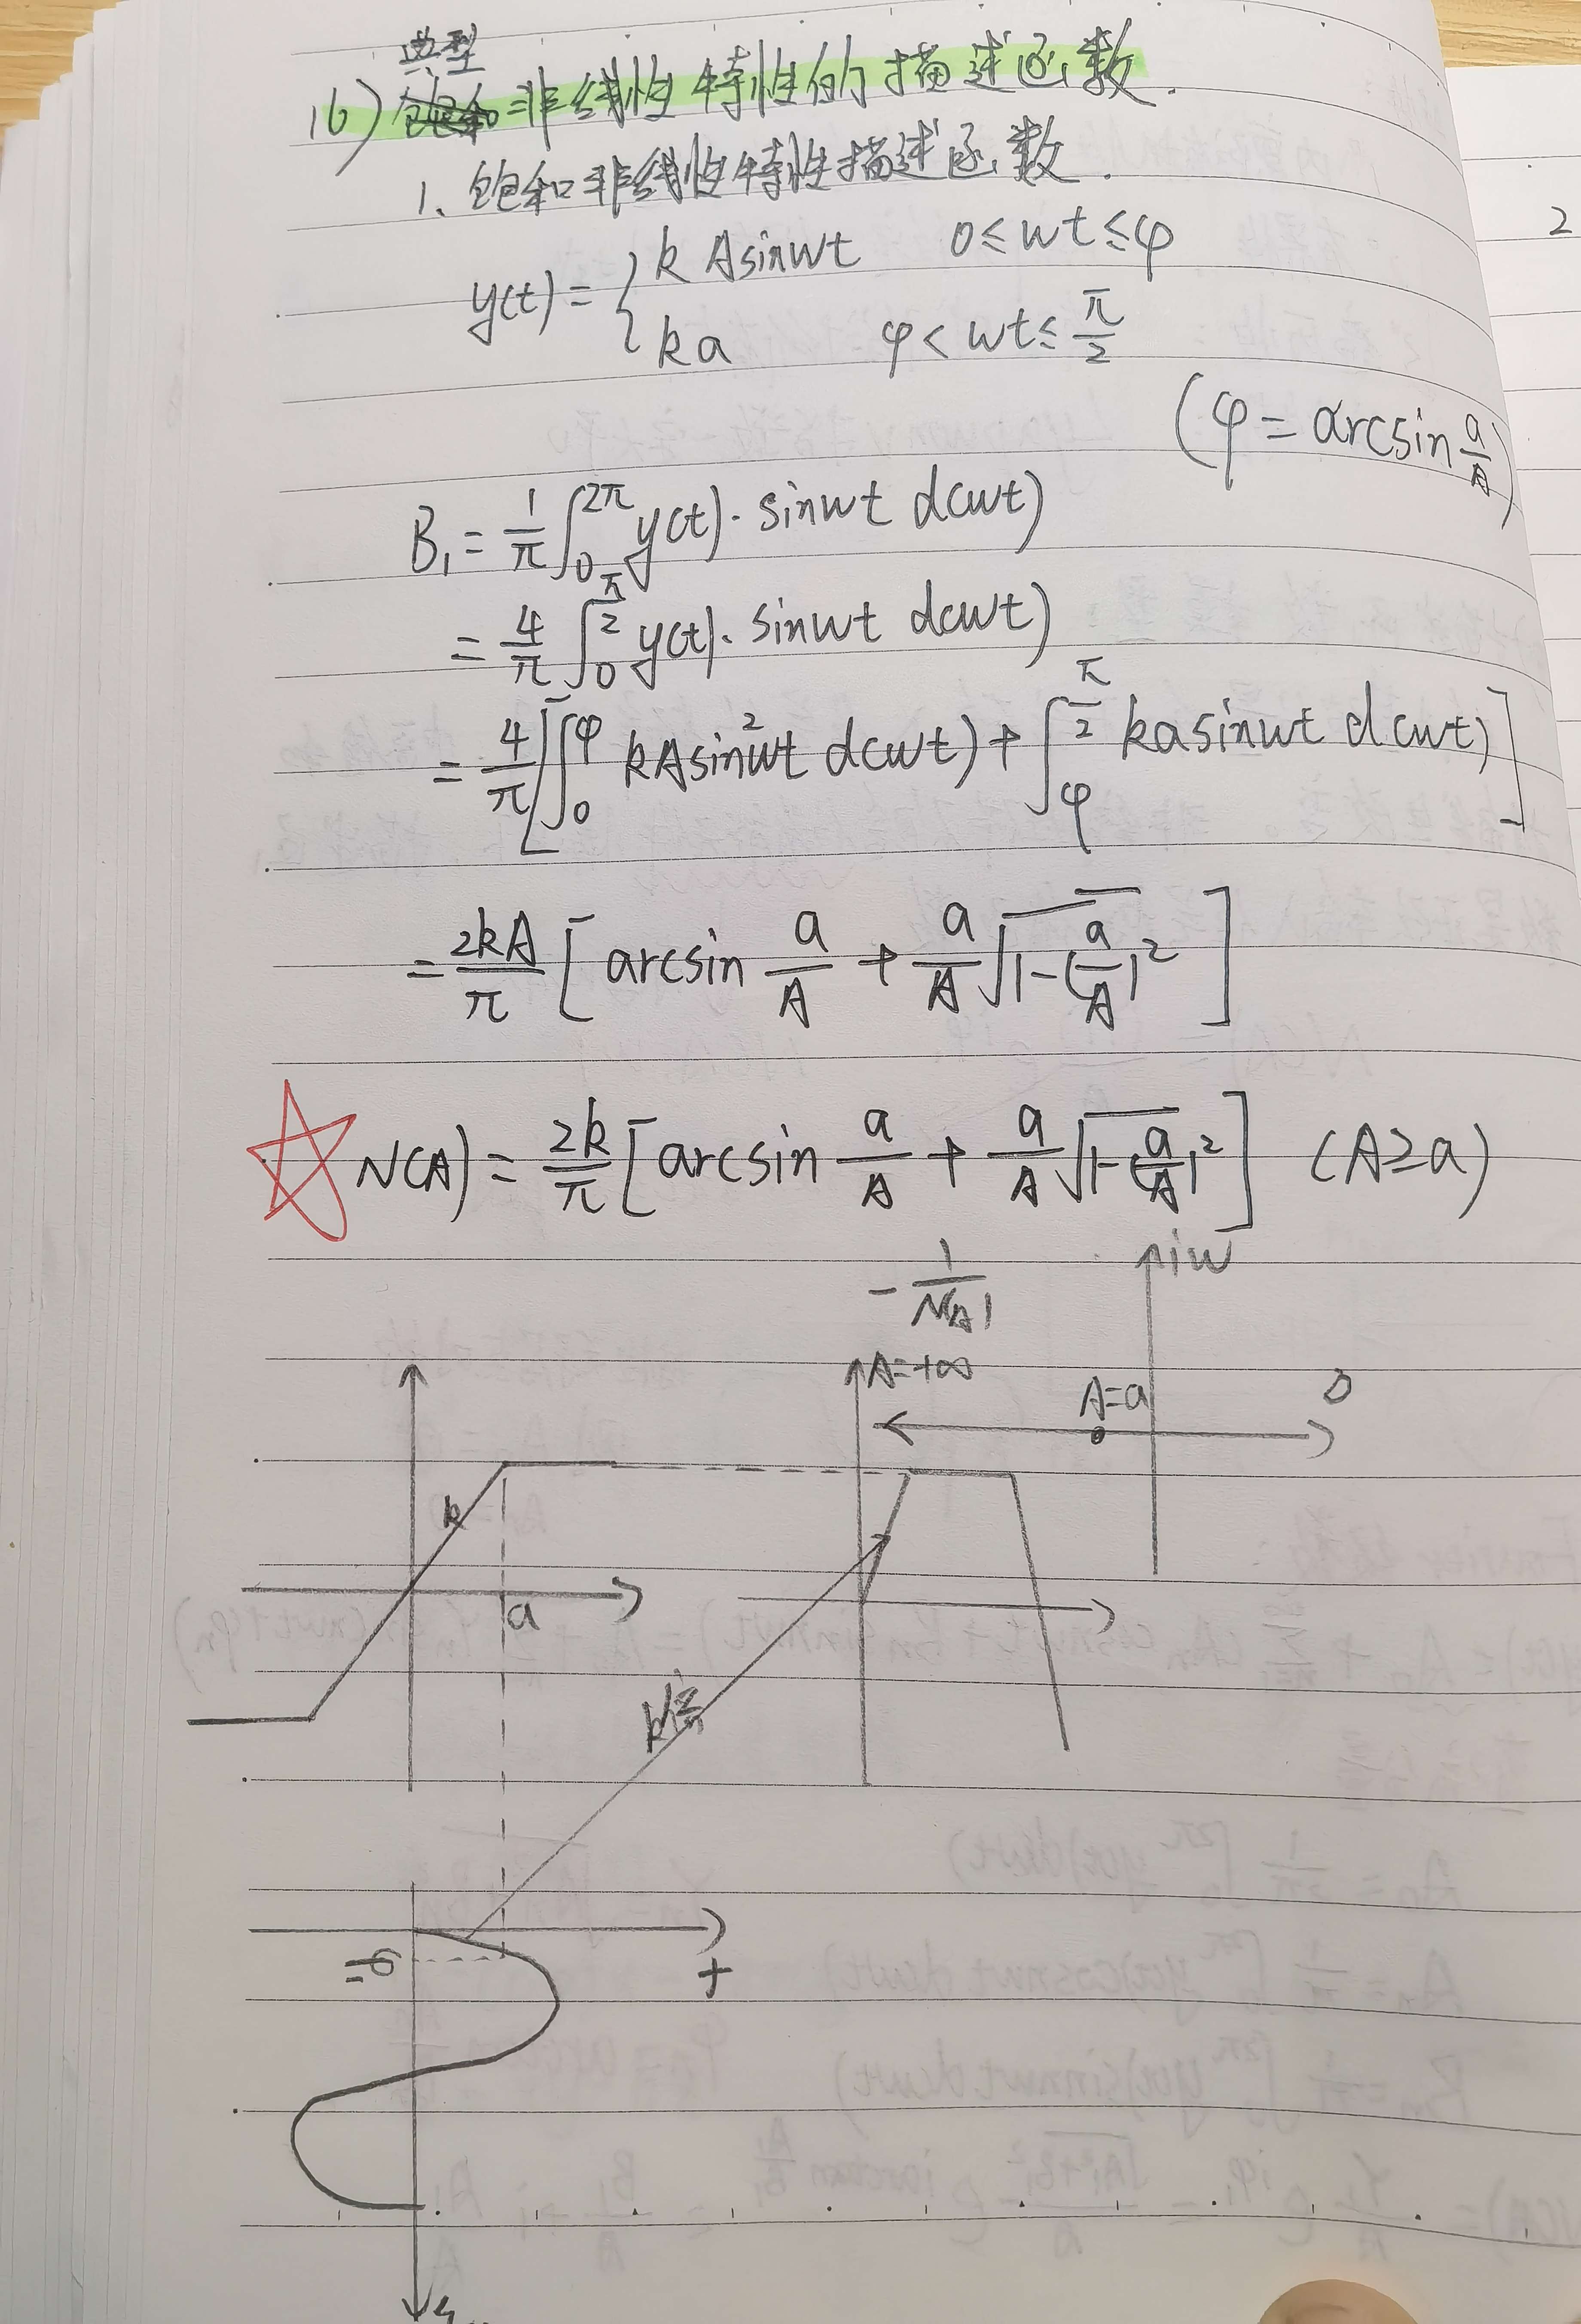 典型
16) 非线性特性的描述函数.
1、饱和非线性特性描述函数.
y(t) = { kAsinwt 0≤wt≤φ
ka φ<wt≤π/2
(φ=arcsin a/A)
B₁ = 1/π ∫₀^2π y(t)·sinwt d(wt)
= 4/π ∫₀^π/2 y(t)·sinwt d(wt)
= 4/π [∫₀^φ kAsin²wt d(wt) + ∫φ^π/2 kasinwt d(wt)]
= 2kA/π [arcsin a/A + a/A √1-(a/A)²]
N(A) = 2k/π [arcsin a/A + a/A √1-(a/A)²] (A≥a)
-1/N(A)
iw
A=+∞
A=a
k
a
k倍